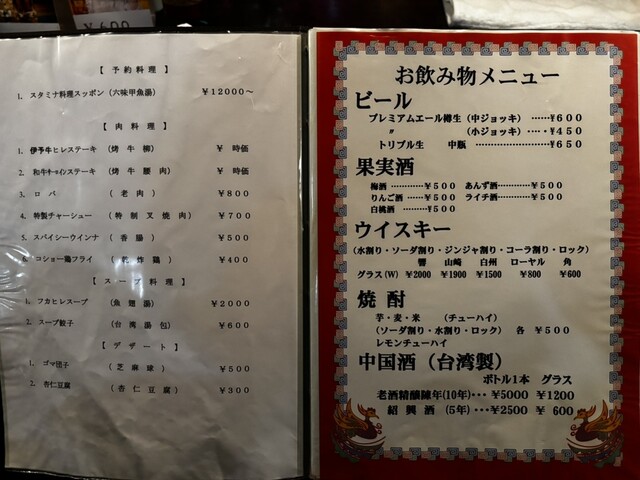 ￥600
【 予 約 料 理 】
1. スタミナ料理スッポン（六味甲魚湯） ￥12000～
【 肉 料 理 】
1. 伊予牛ヒレステーキ （ 烤 牛 柳 ） ￥ 時価
2. 和牛サーロインステーキ （ 烤 牛 腰 肉 ） ￥ 時価
3. ロ バ （ 老 肉 ） ￥800
4. 特製チャーシュー （ 特 制 叉 焼 肉 ） ￥700
5. スパイシーウインナ （ 香 腸 ） ￥500
6. コショー鶏フライ （ 乾 炸 鶏 ） ￥400
【 ス ー プ 料 理 】
1. フカヒレスープ （ 魚 翅 湯 ） ￥2000
2. スープ餃子 （ 台 湾 湯 包 ） ￥600
【 デ ザ ー ト 】
1. ゴマ団子 （ 芝 麻 球 ） ￥500
2. 杏仁豆腐 （ 杏 仁 豆 腐 ） ￥300
お飲み物メニュー
ビール
プレミアムエール樽生（中ジョッキ） ……￥600
〃 （小ジョッキ）…‥￥450
トリプル生 中瓶 ……………………￥650
果実酒
梅酒 …………￥500 あんず酒…………￥500
りんご酒 ……￥500 ライチ酒…………￥500
白桃酒 ………￥500
ウイスキー
（水割り・ソーダ割り・ジンジャ割り・コーラ割り・ロック）
響 山崎 白州 ローヤル 角
グラス(W) ￥2000 ￥1900 ￥1500 ￥800 ￥600
焼 酎
芋・麦・米 （チューハイ）
（ソーダ割り・水割り・ロック） 各 ￥500
レモンチューハイ
中国酒（台湾製）
ボトル1本 グラス
老酒精醸陳年(10年)･･･ ￥5000 ￥1200
紹 興 酒 (5年)･･･￥2500 ￥ 600